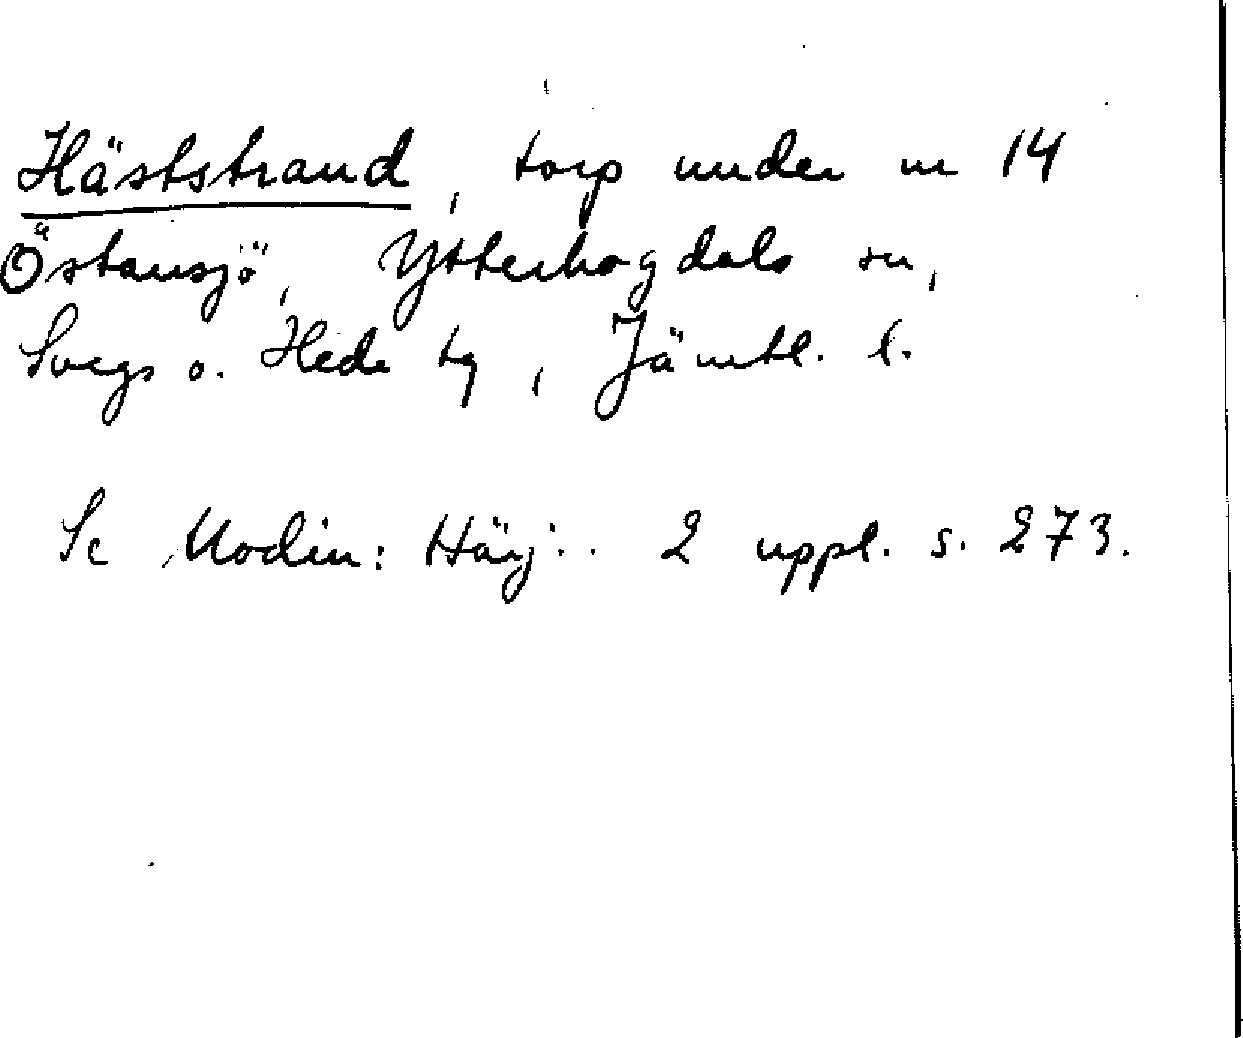 Häststrand, torp under nr 14
Östansjö, Ytterhogdals sn,
Svegs o. Hede tg, Jämtl. l.
Se Modin: Härj.. 2 uppl. s. 273.